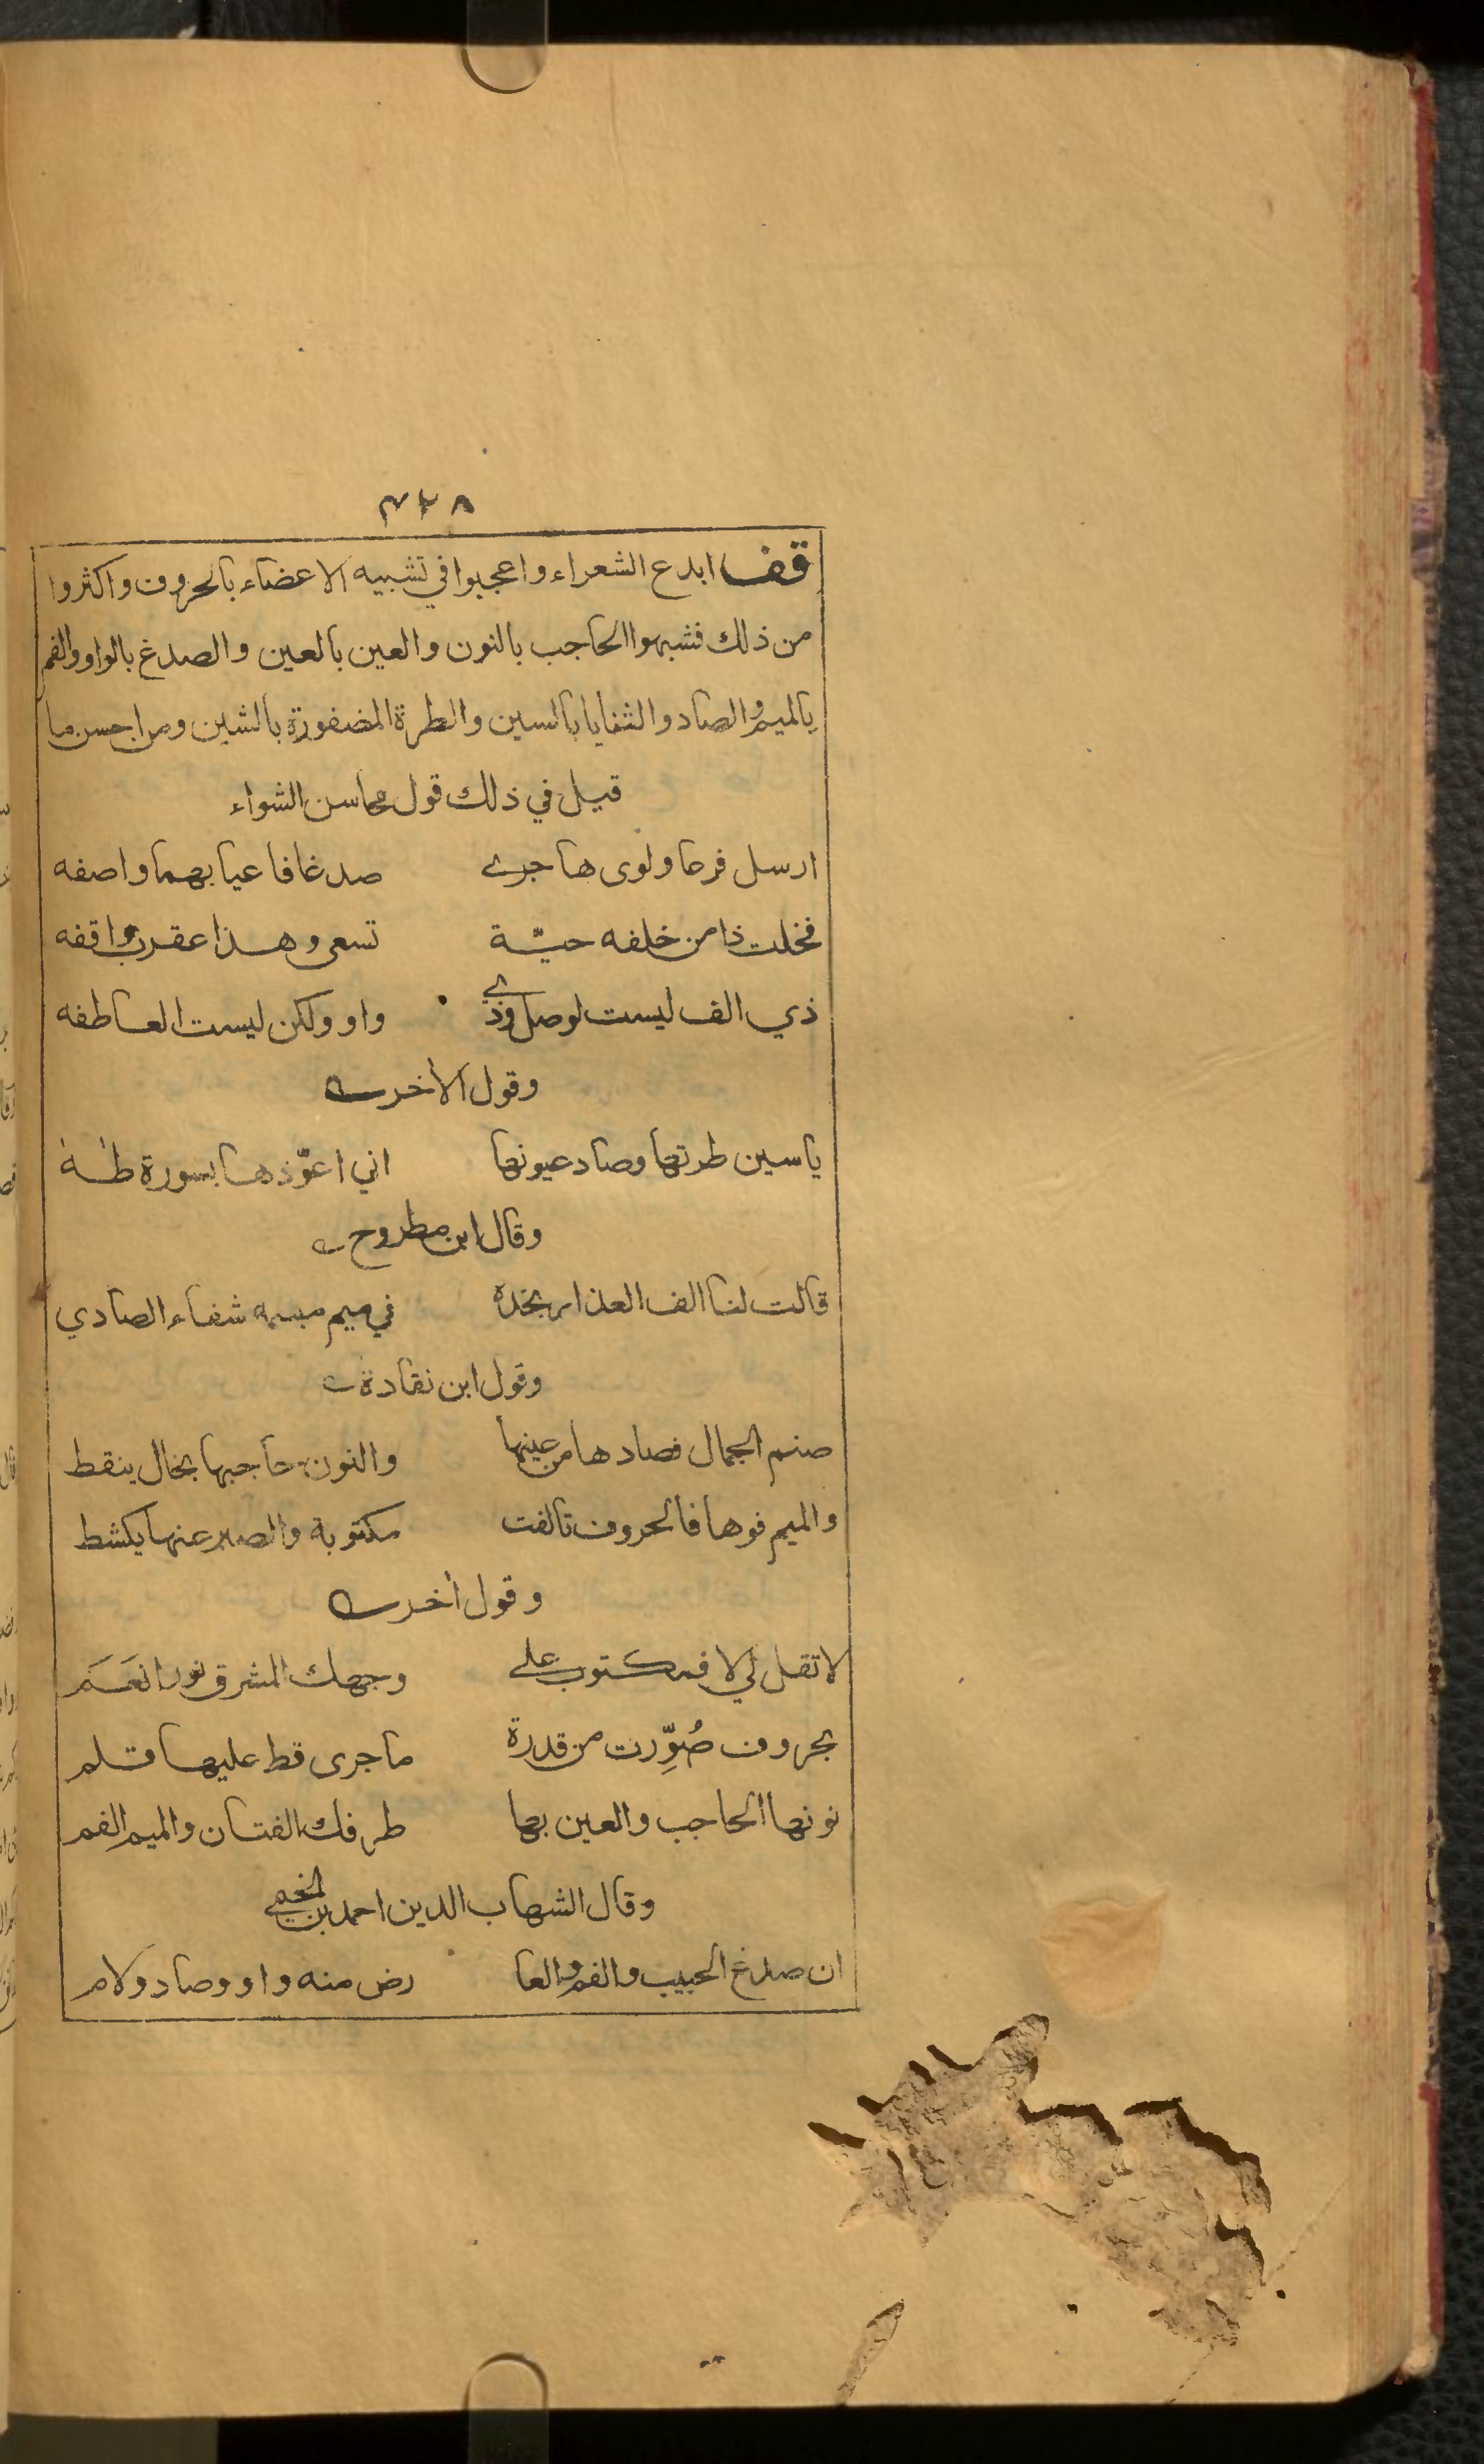 ٣٢٨
قف ابدع الشعراء واعجبوا في تشبيه الاعضاء بالحروف واكثروا
من ذلك فشبهوا الحاجب بالنون والعين بالعين والصدغ بالواو والفم
بالميم والصاد والثنايا بالسين والطرة المضفورة بالشين ومن احسن ما
قيل في ذلك قول محاسن الشواء
ارسل فرعا ولوى هاجري صدغا فاعيا بهما واصفه
فخلت ذا من خلفه حيّة تسعى وهذا عقرب واقفه
ذي الف ليست لوصل وذي واو ولكن ليست العاطفه
وقول الأخر
ياسين طرتها وصاد عيونها اني اعوّذها بسورة طه
وقال ابن مطروح
قالت لنا الف العذار بخده في ميم مبسمه شفاء الصادي
وقول ابن نقادة
صنم الجمال فصادها من عينها والنون حاجبها بخال ينقط
والميم فوها فالحروف تالفت مكتوبة والصبر عنها يكشط
وقول أخر
لا تقل لي لا فمكتوب على وجهك المشرق نورا نَعَم
بحروف صُوِّرت من قدرة ما جرى قط عليها قلم
نونها الحاجب والعين بها طرفك الفتان والميم الفم
وقال الشهاب الدين احمد بن الخيمي
ان صدغ الحبيب والفم والعا رض منه واو وصاد ولام